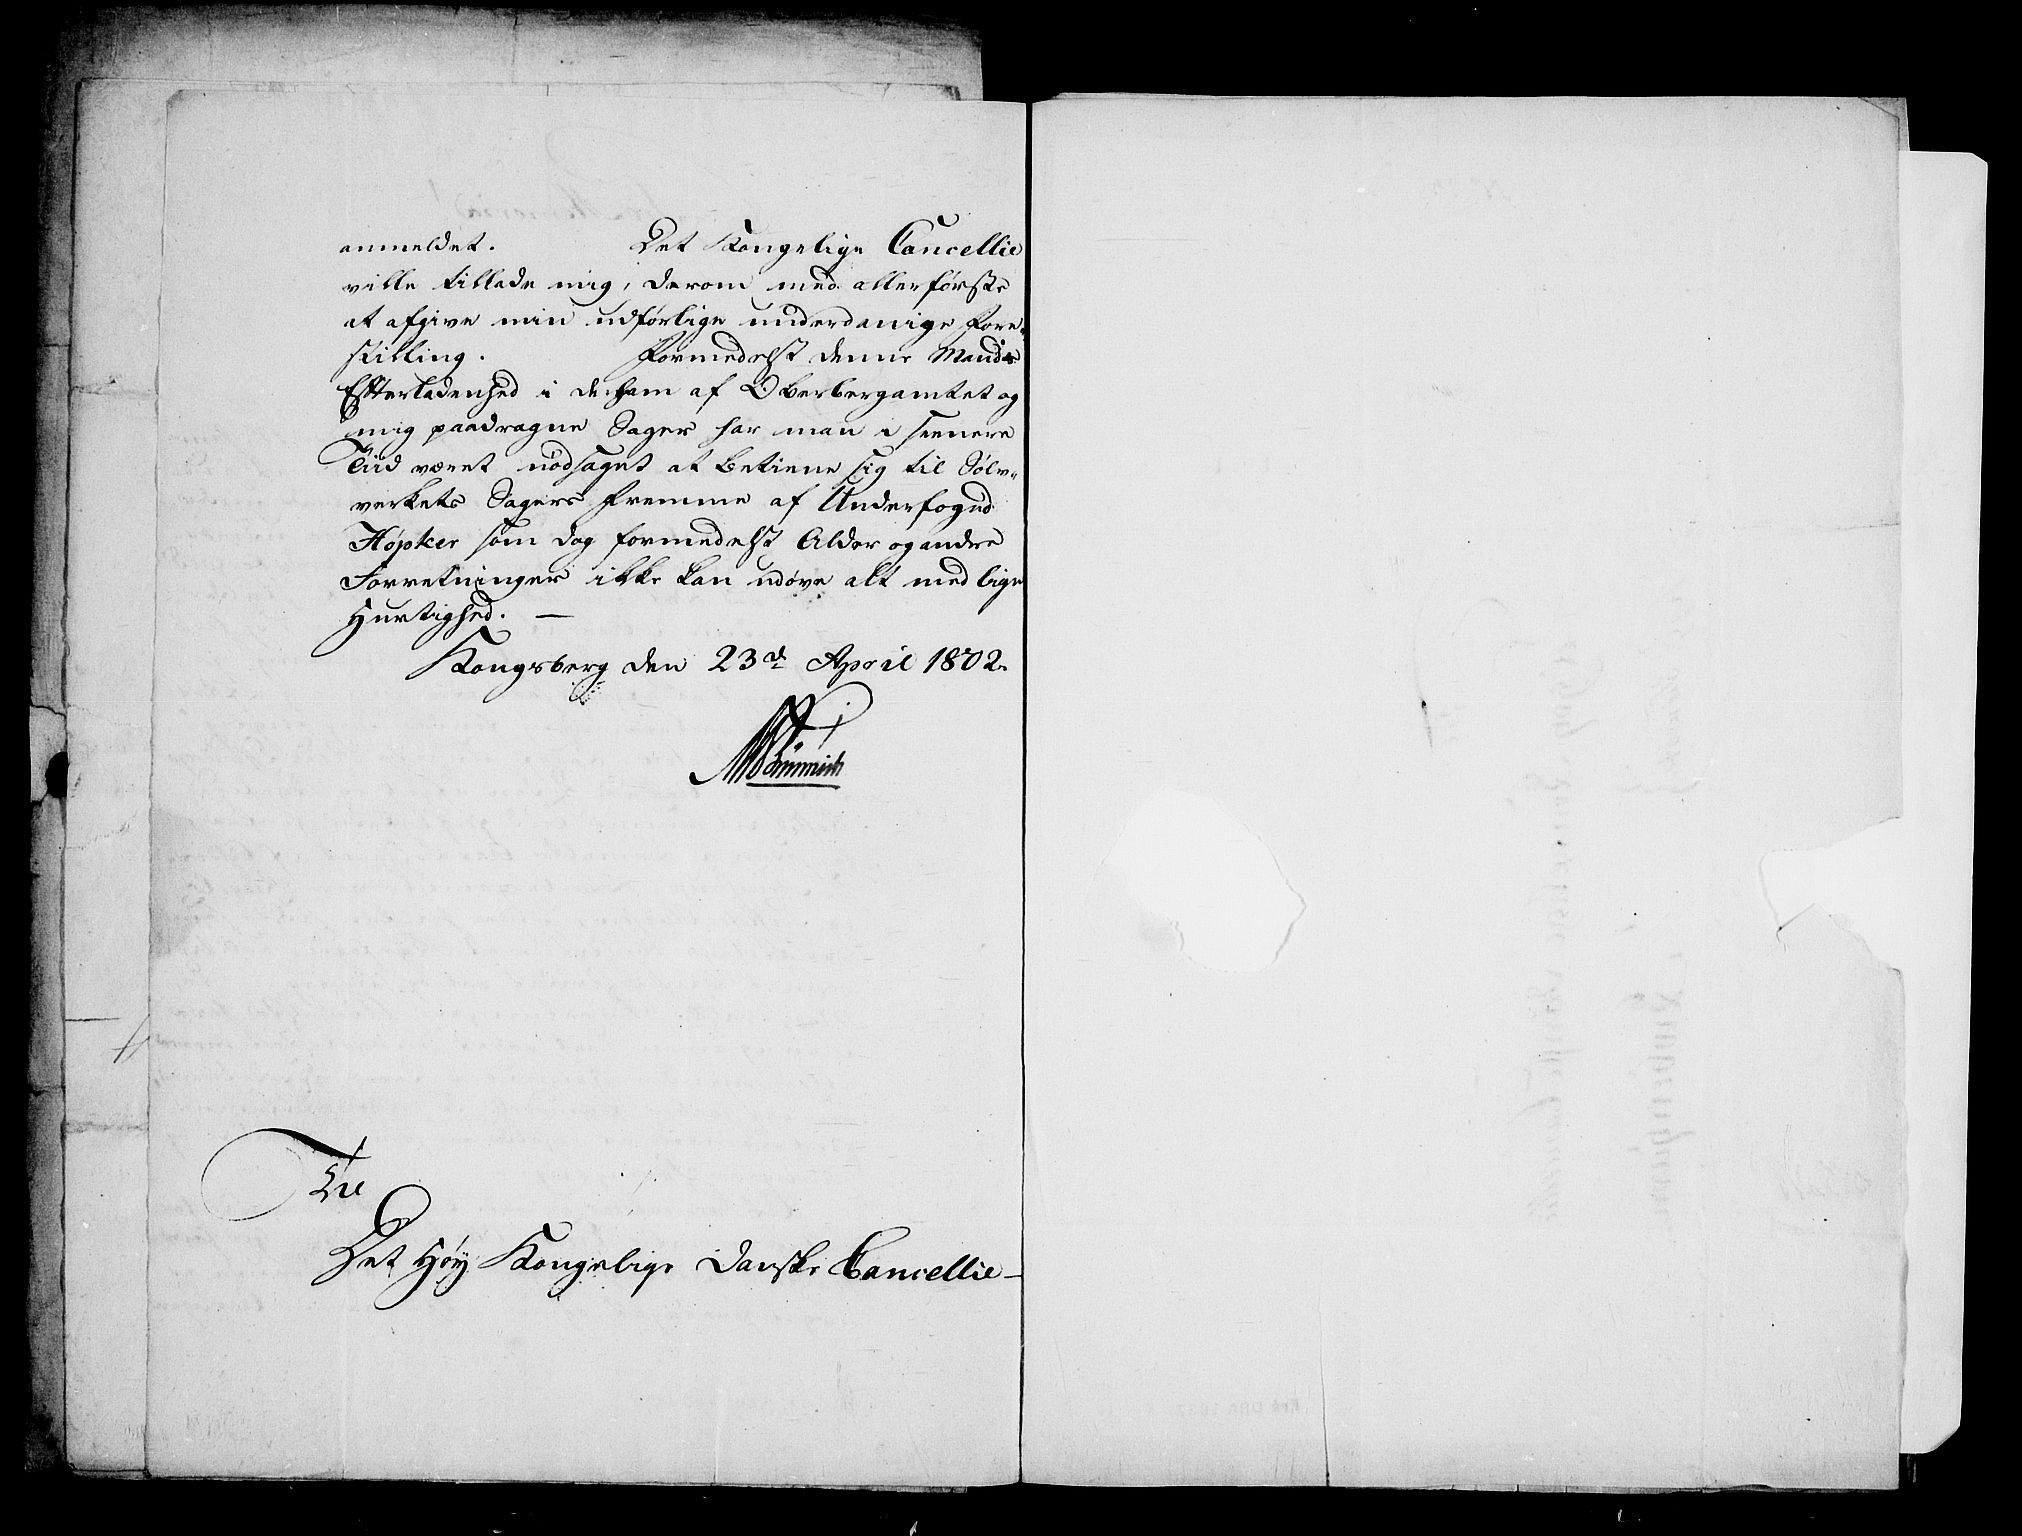 anmeldet. Det Kongelige Cancellie
ville tillade mig, derom med allerførste
at afgive min udførlige underdanige Fore-
stilling. Formedelst denne Mands
Efterladenhed i de ham af Oberbergamtet og
mig paadragne Sager har man i seenere
Tiid været nødsaget at betiene sig til Sølv-
verkets Sagers Fremme af Underfoged
Høpker som dog formedelst Alder og andre
Forretninger ikke kan udøve alt med lige
Hurtighed. —
Kongsberg den 23d April 1802.
Til
Det Høy Kongelige Danske Cancellie